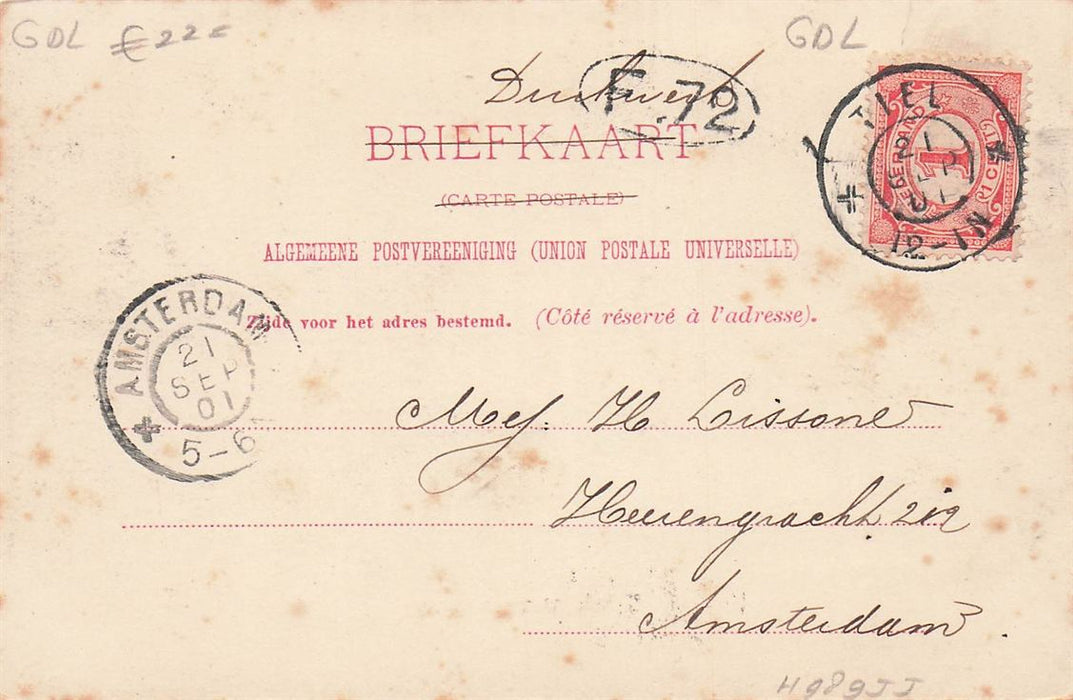 GDL £22= GDL
Drukwerk
F.72
BRIEFKAART
(CARTE POSTALE)
ALGEMEENE POSTVEREENIGING (UNION POSTALE UNIVERSELLE)
Zijde voor het adres bestemd. (Côté réservé à l'adresse).
TIEL
21
SEP
01
12-1N
NEDERLAND
1
1 CENT
AMSTERDAM
21
SEP
01
5-6
Mej. H Lissone
Heerengracht 212
Amsterdam.
H989JJ